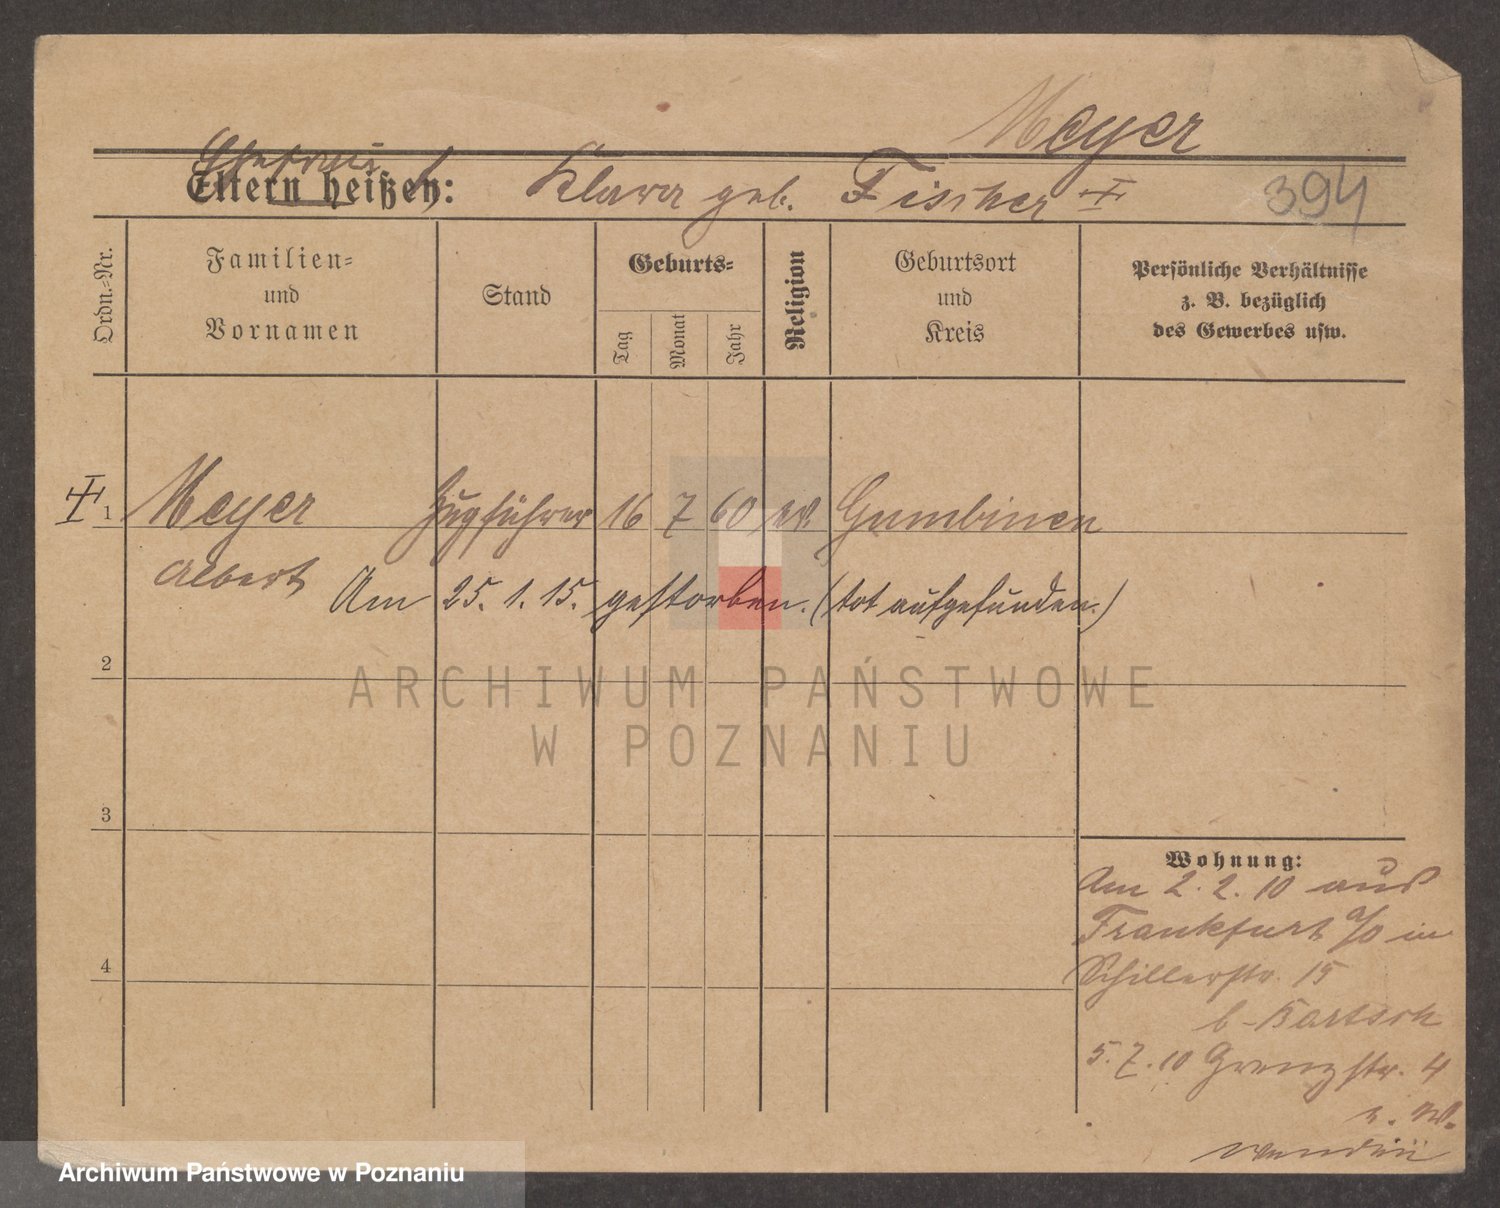 Meyer
Ehefrau
Eltern heißen: Klara geb. Fischer
394
Ordn.=Nr.
Familien=
und
Vornamen
Stand
Geburts=
Tag
Monat
Jahr
Religion
Geburtsort
und
Kreis
Persönliche Verhältnisse
z. B. bezüglich
des Gewerbes usw.
1 Meyer Zugführer 16 7 60 ev. Gumbinen
Albert
Am 25. 1. 15. gestorben. (tot aufgefunden.)
2
3
4
Wohnung:
Am 2. 2. 10 aus
Frankfurt a/O in
Schillerstr. 15
b - Bartsch
5. 7. 10 Grenzstr. 4
e. W.
ARCHIWUM PAŃSTWOWE
W POZNANIU
Archiwum Państwowe w Poznaniu